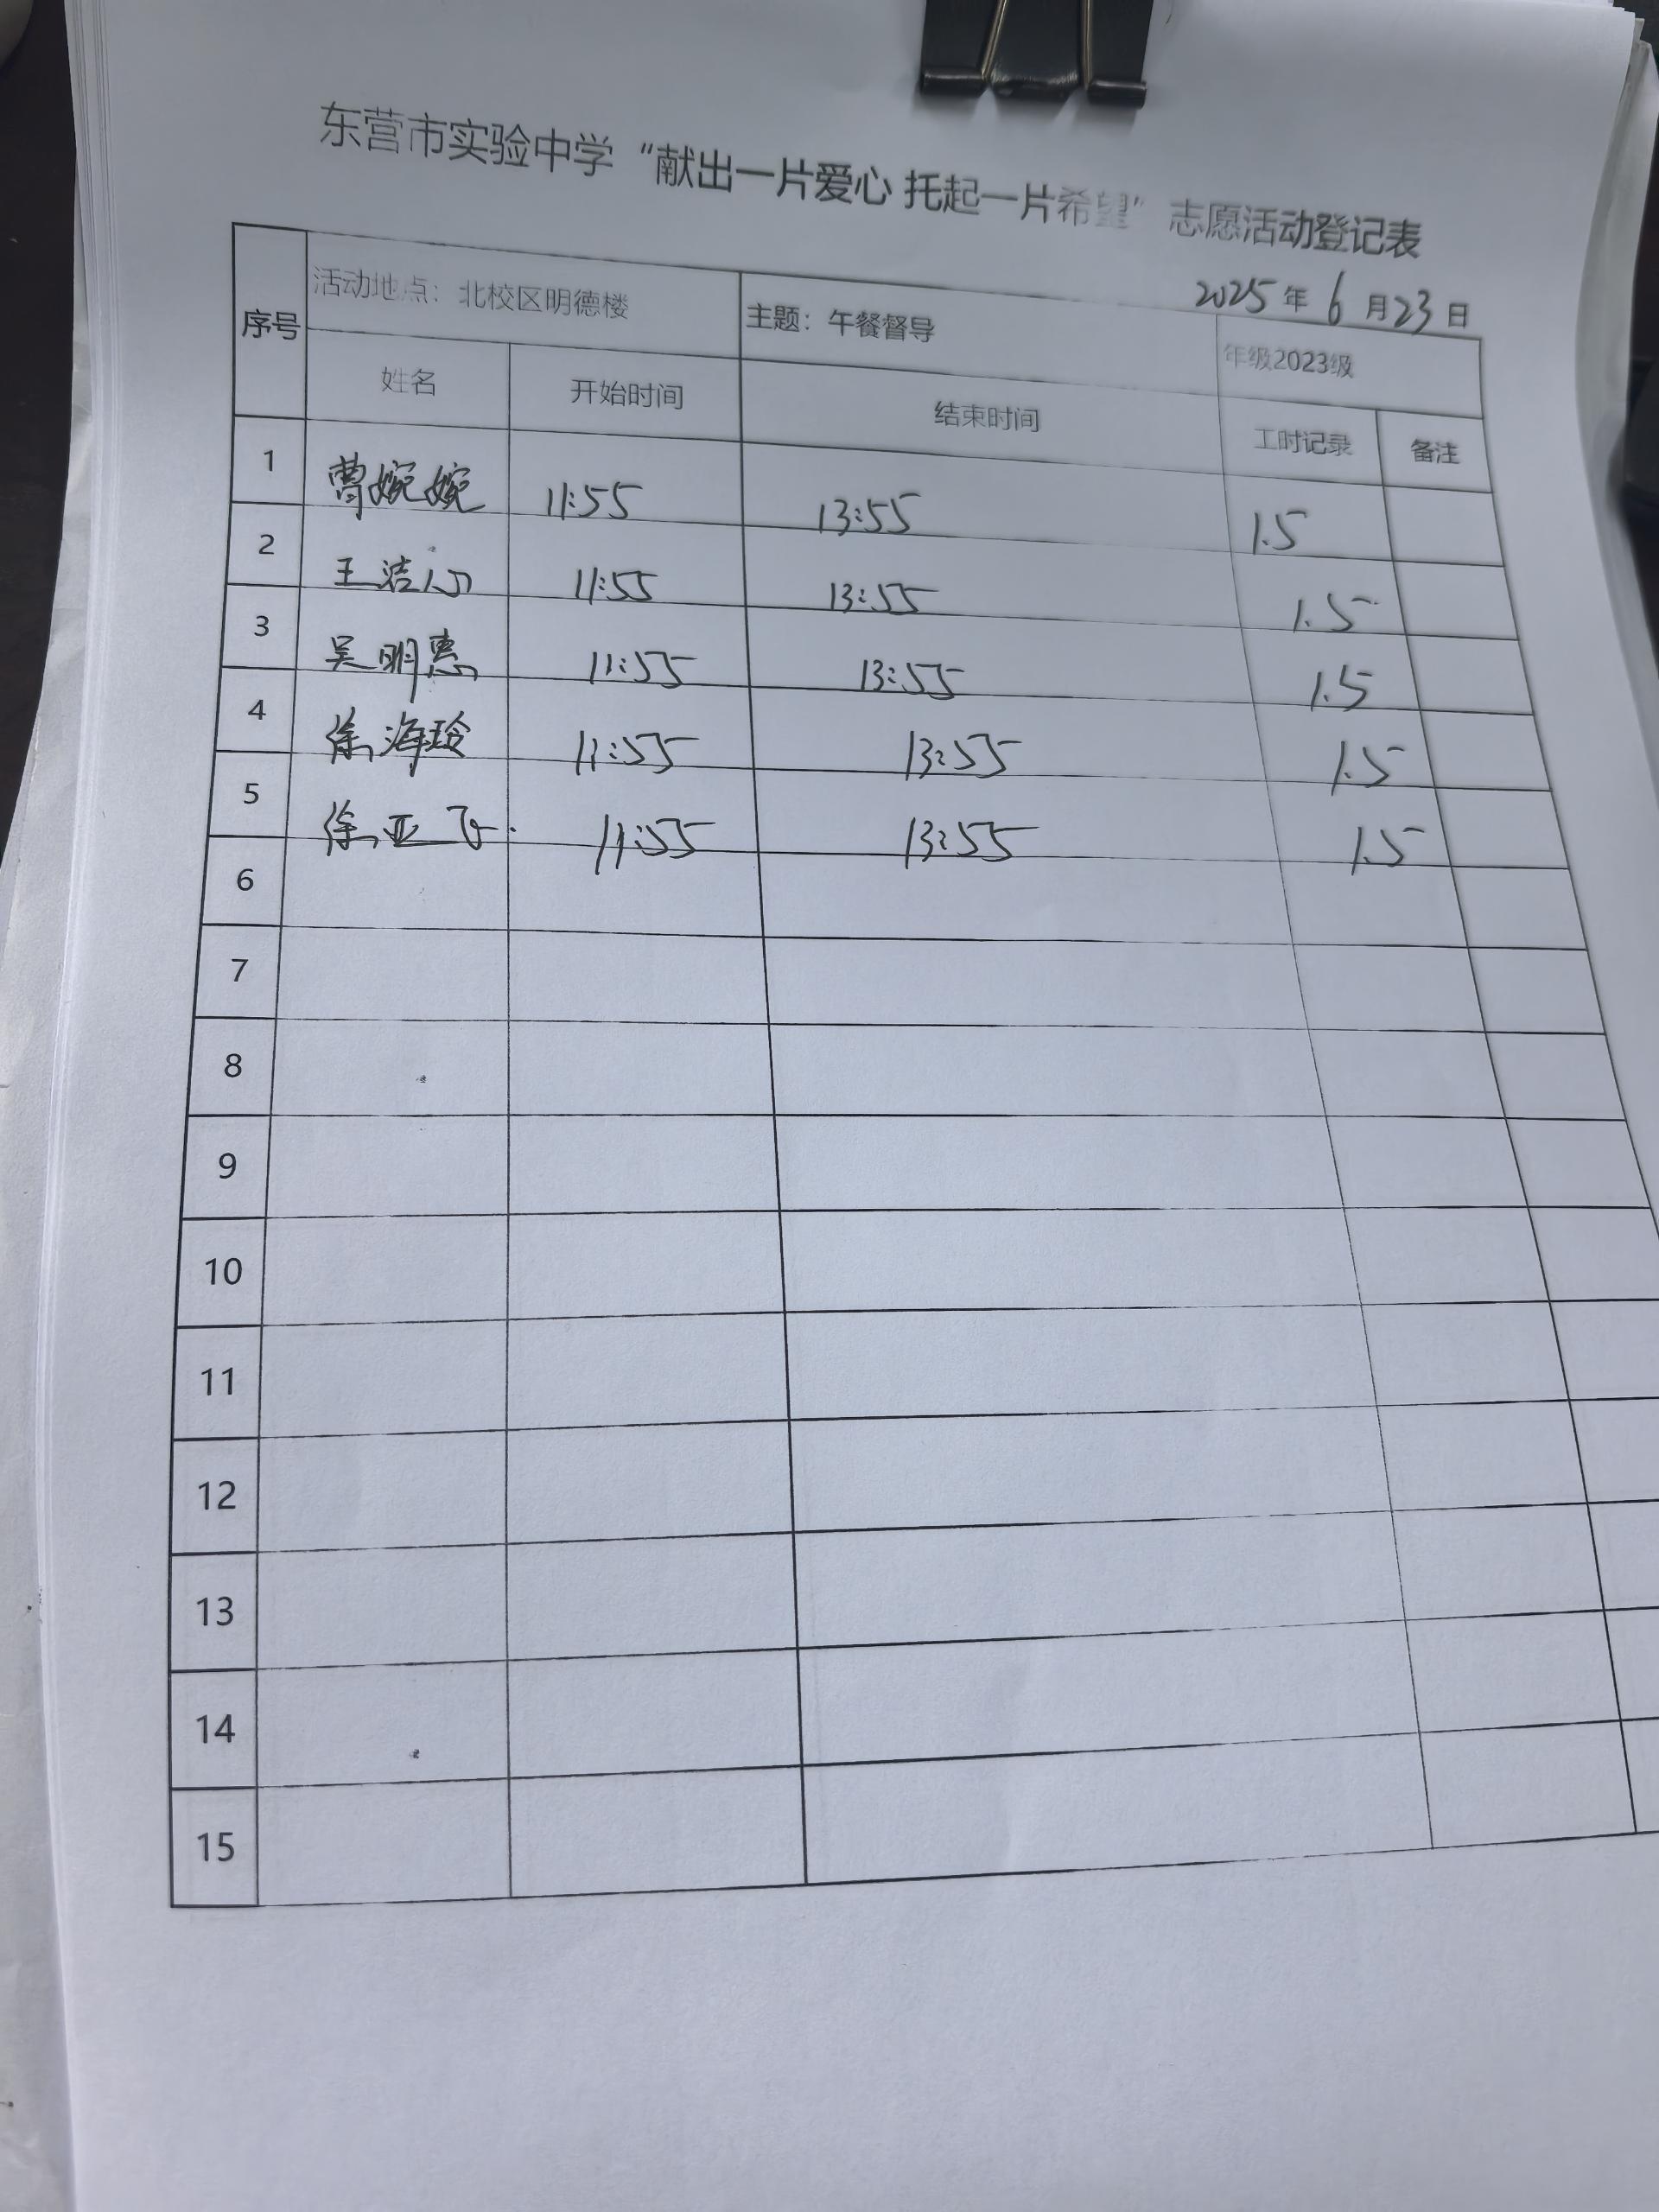 东营市实验中学“献出一片爱心 托起一片希望”志愿活动登记表
2025年6月23日
序号 活动地点：北校区明德楼 主题：午餐督导 年级2023级
姓名 开始时间 结束时间 工时记录 备注
1 曹婉婉 11:55 13:55 1.5
2 王洁 11:55 13:55 1.5
3 吴明惠 11:55 13:55 1.5
4 徐海玲 11:55 13:55 1.5
5 徐亚飞 11:55 13:55 1.5
6
7
8
9
10
11
12
13
14
15